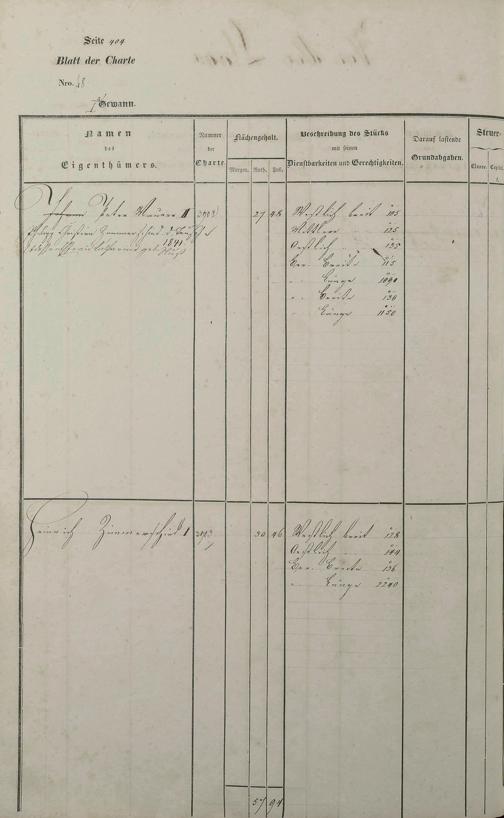 In der
Seite 404
Blatt der Charte
Nro. 48
1te Gewann.
Namen des Eigenthümers.
Nummer der Charte.
Flächengehalt.
Morgen. Ruth. Fuß.
Beschreibung des Stücks mit seinen Dienstbarkeiten und Gerechtigkeiten.
Darauf lastende Grundabgaben.
Steuer-
Classe. Capital.
f.
Peter Maurer II 27 48 Westlich breit 115
Philipp Christian Zimmerschied 1841 Mittlere " 125
Oestlich " 135
Ber. Breite 115
" Länge 1090
" Breite 130
" Länge 1150
Heinrich Zimmerschied I 30 46 Westlich breit 128
Oestlich " 144
Ber. Breite 136
" Länge 2240
57 94